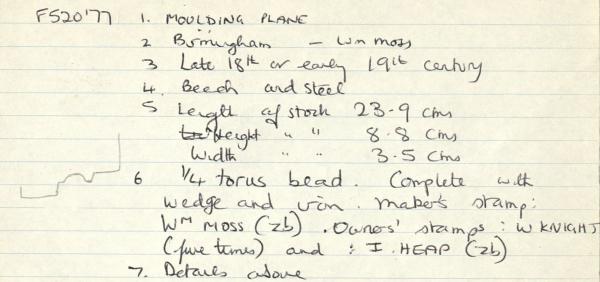 F520'77 1. MOULDING PLANE
2 Birmingham – Wm moss
3 Late 18th or early 19th century
4. Beech and steel
5 Length of stock 23.9 Cms
Height " " 8.8 Cms
Width " " 3.5 Cms
6 1/4 torus bead. Complete with
wedge and iron. maker's stamp:
WM MOSS (zb). Owners' stamps: W KNIGHT
(five times) and : I. HEAP (zb)
7. Details above